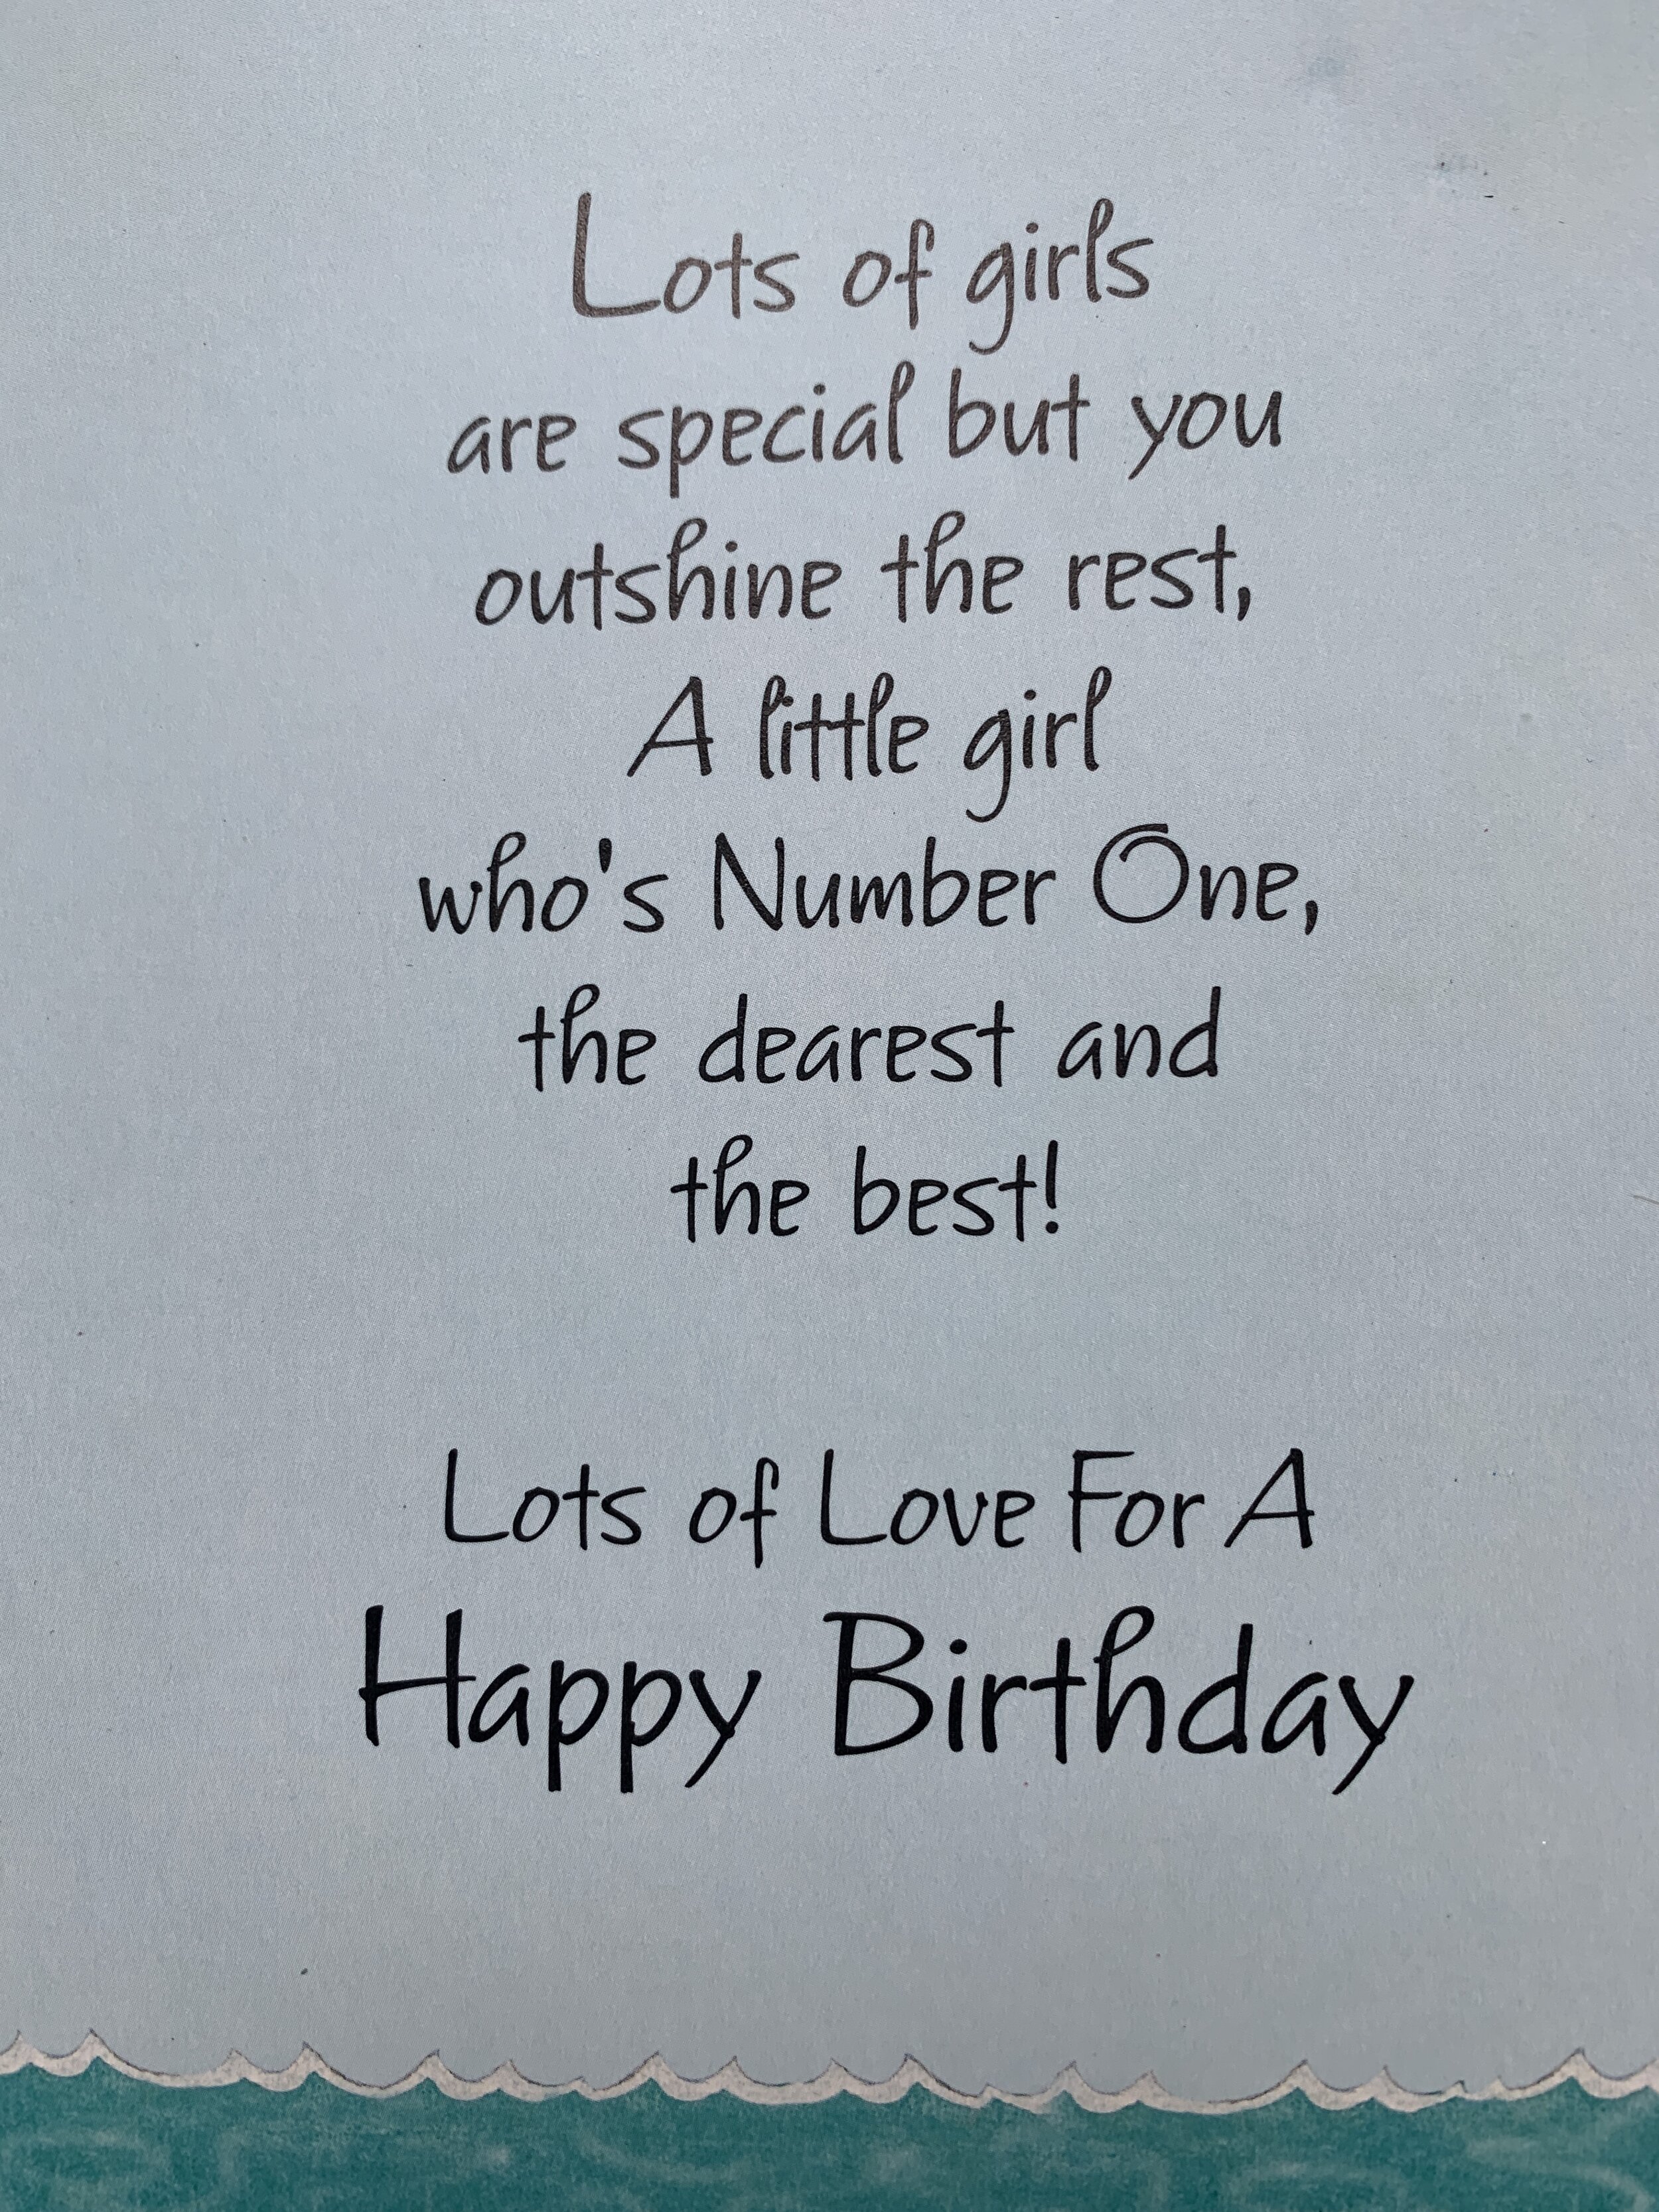 Lots of girls
are special but you
outshine the rest,
A little girl
who's Number One,
the dearest and
the best!
Lots of Love For A
Happy Birthday